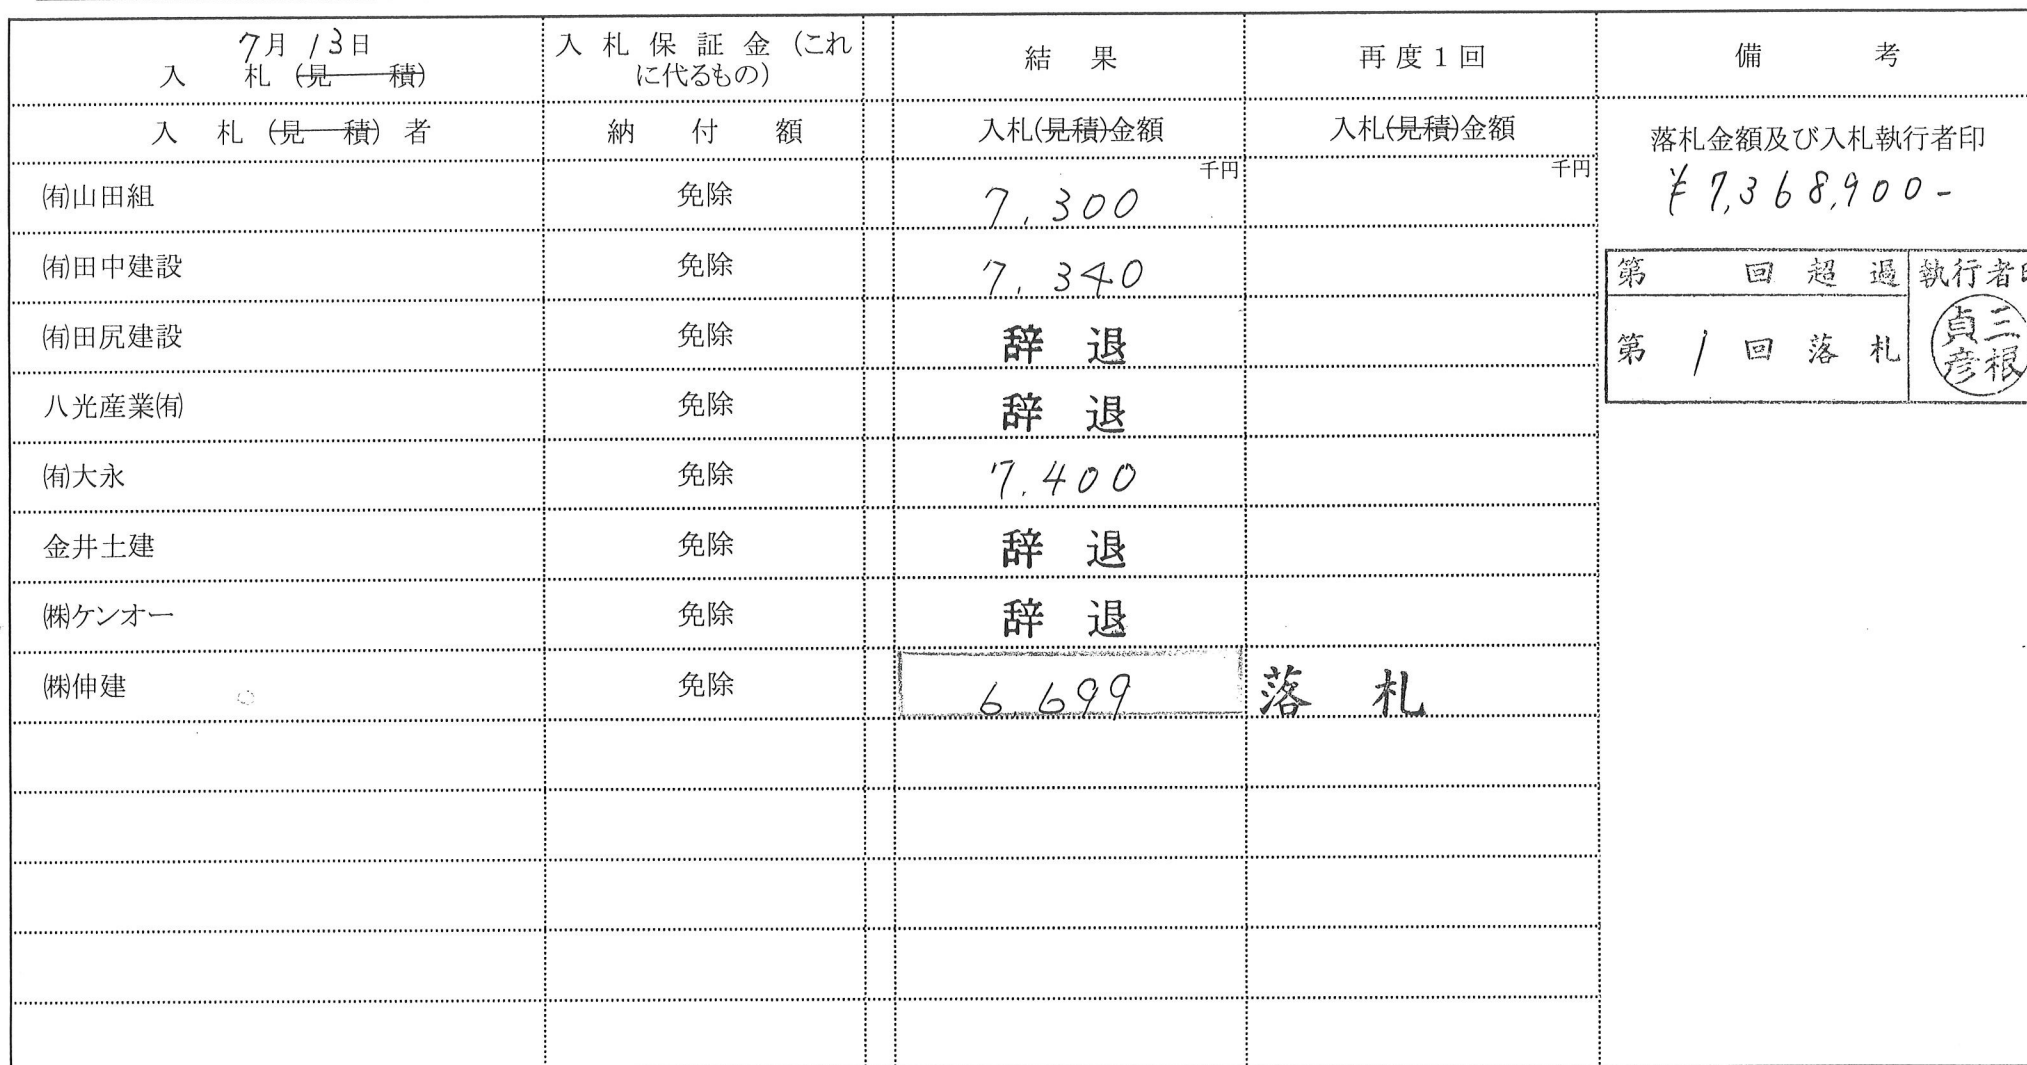 7月13日
入札(見積)
入札保証金(これ
に代るもの)
結果
再度1回
備考
入札(見積)者
納付額
入札(見積)金額
入札(見積)金額
落札金額及び入札執行者印
千円
千円
㈲山田組 免除 7,300
¥7,368,900-
㈲田中建設 免除 7,340
第 回超過 執行者印
㈲田尻建設 免除 辞退
第1回落札
三根貞彦
八光産業㈲ 免除 辞退
㈲大永 免除 7.400
金井土建 免除 辞退
㈱ケンオー 免除 辞退
㈱伸建 免除 6,699 落札